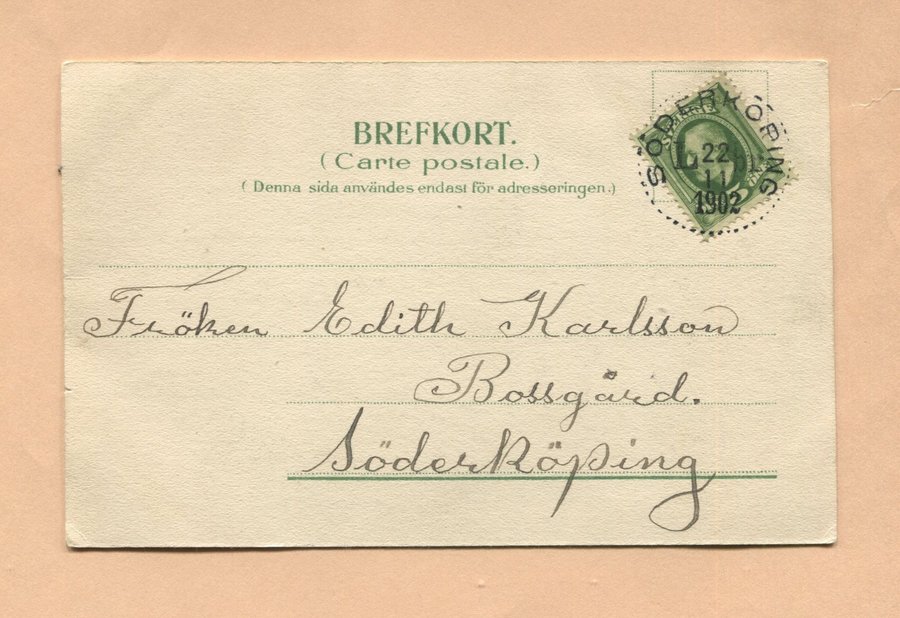 BREFKORT.
(Carte postale.)
(Denna sida användes endast för adresseringen.)
SÖDERKÖPING
22
11
1902
Fröken Edith Karlsson
Bossgård.
Söderköping